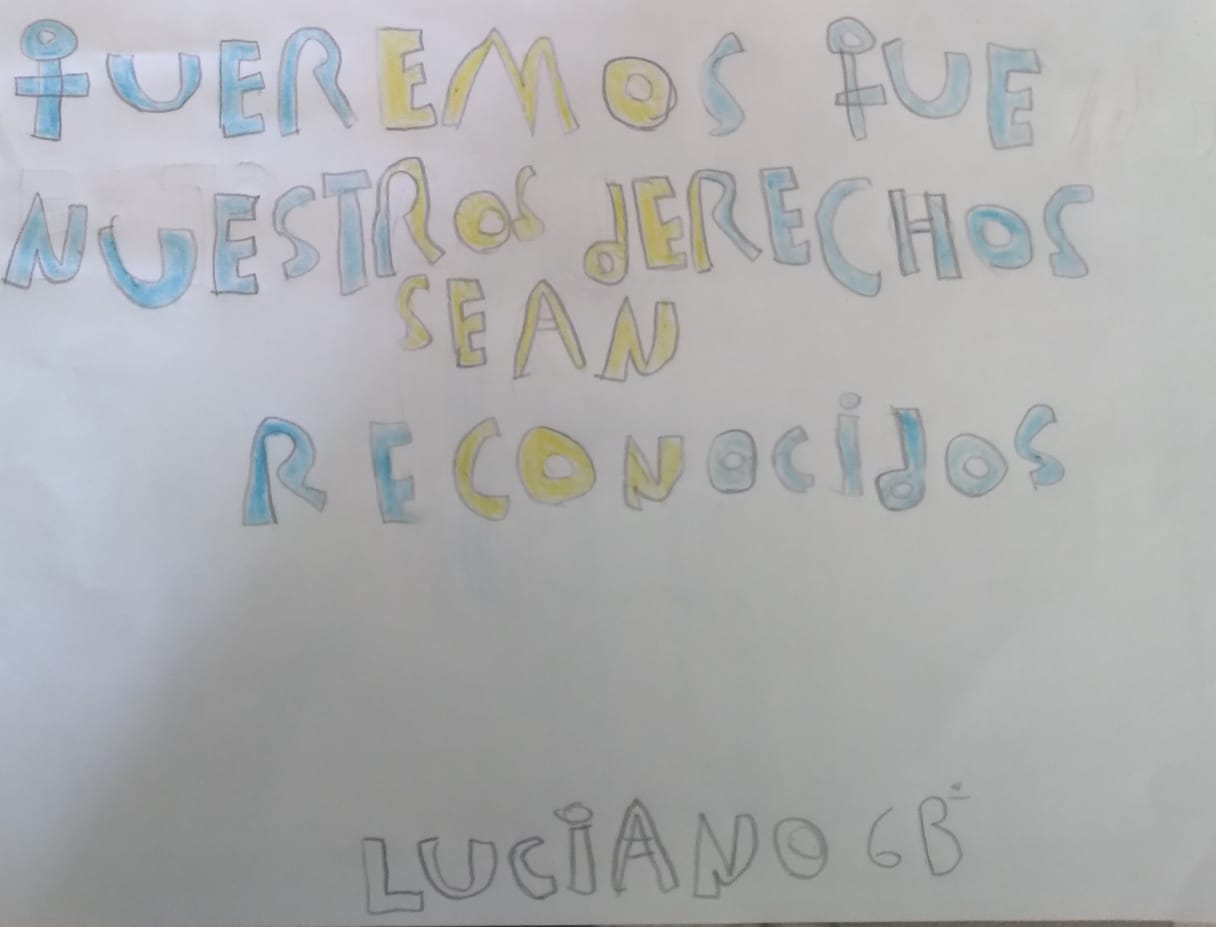 QUEREMOS QUE
NUESTROS dERECHOS
SEAN
RECONOCidOS
LUCiANO 6B